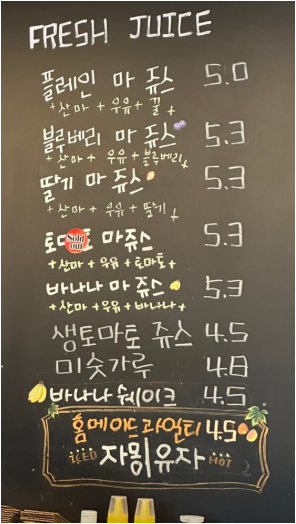 FRESH JUICE
플레인 마 쥬스 5.0
+ 산마 + 우유 + 꿀 +
블루베리 마 쥬스 5.3
+ 산마 + 우유 + 블루베리 +
딸기 마 쥬스 5.3
+ 산마 + 우유 + 딸기 +
마쥬스 5.3
Sold out
+ 산마 + 우유 + 토마토 +
바나나 마 쥬스 5.3
+ 산마 + 우유 + 바나나 +
생토마토 쥬스 4.5
미숫가루 4.8
바나나 쉐이크 4.5
홈메이드 과일티 4.5
ICED 자몽 유자 HOT